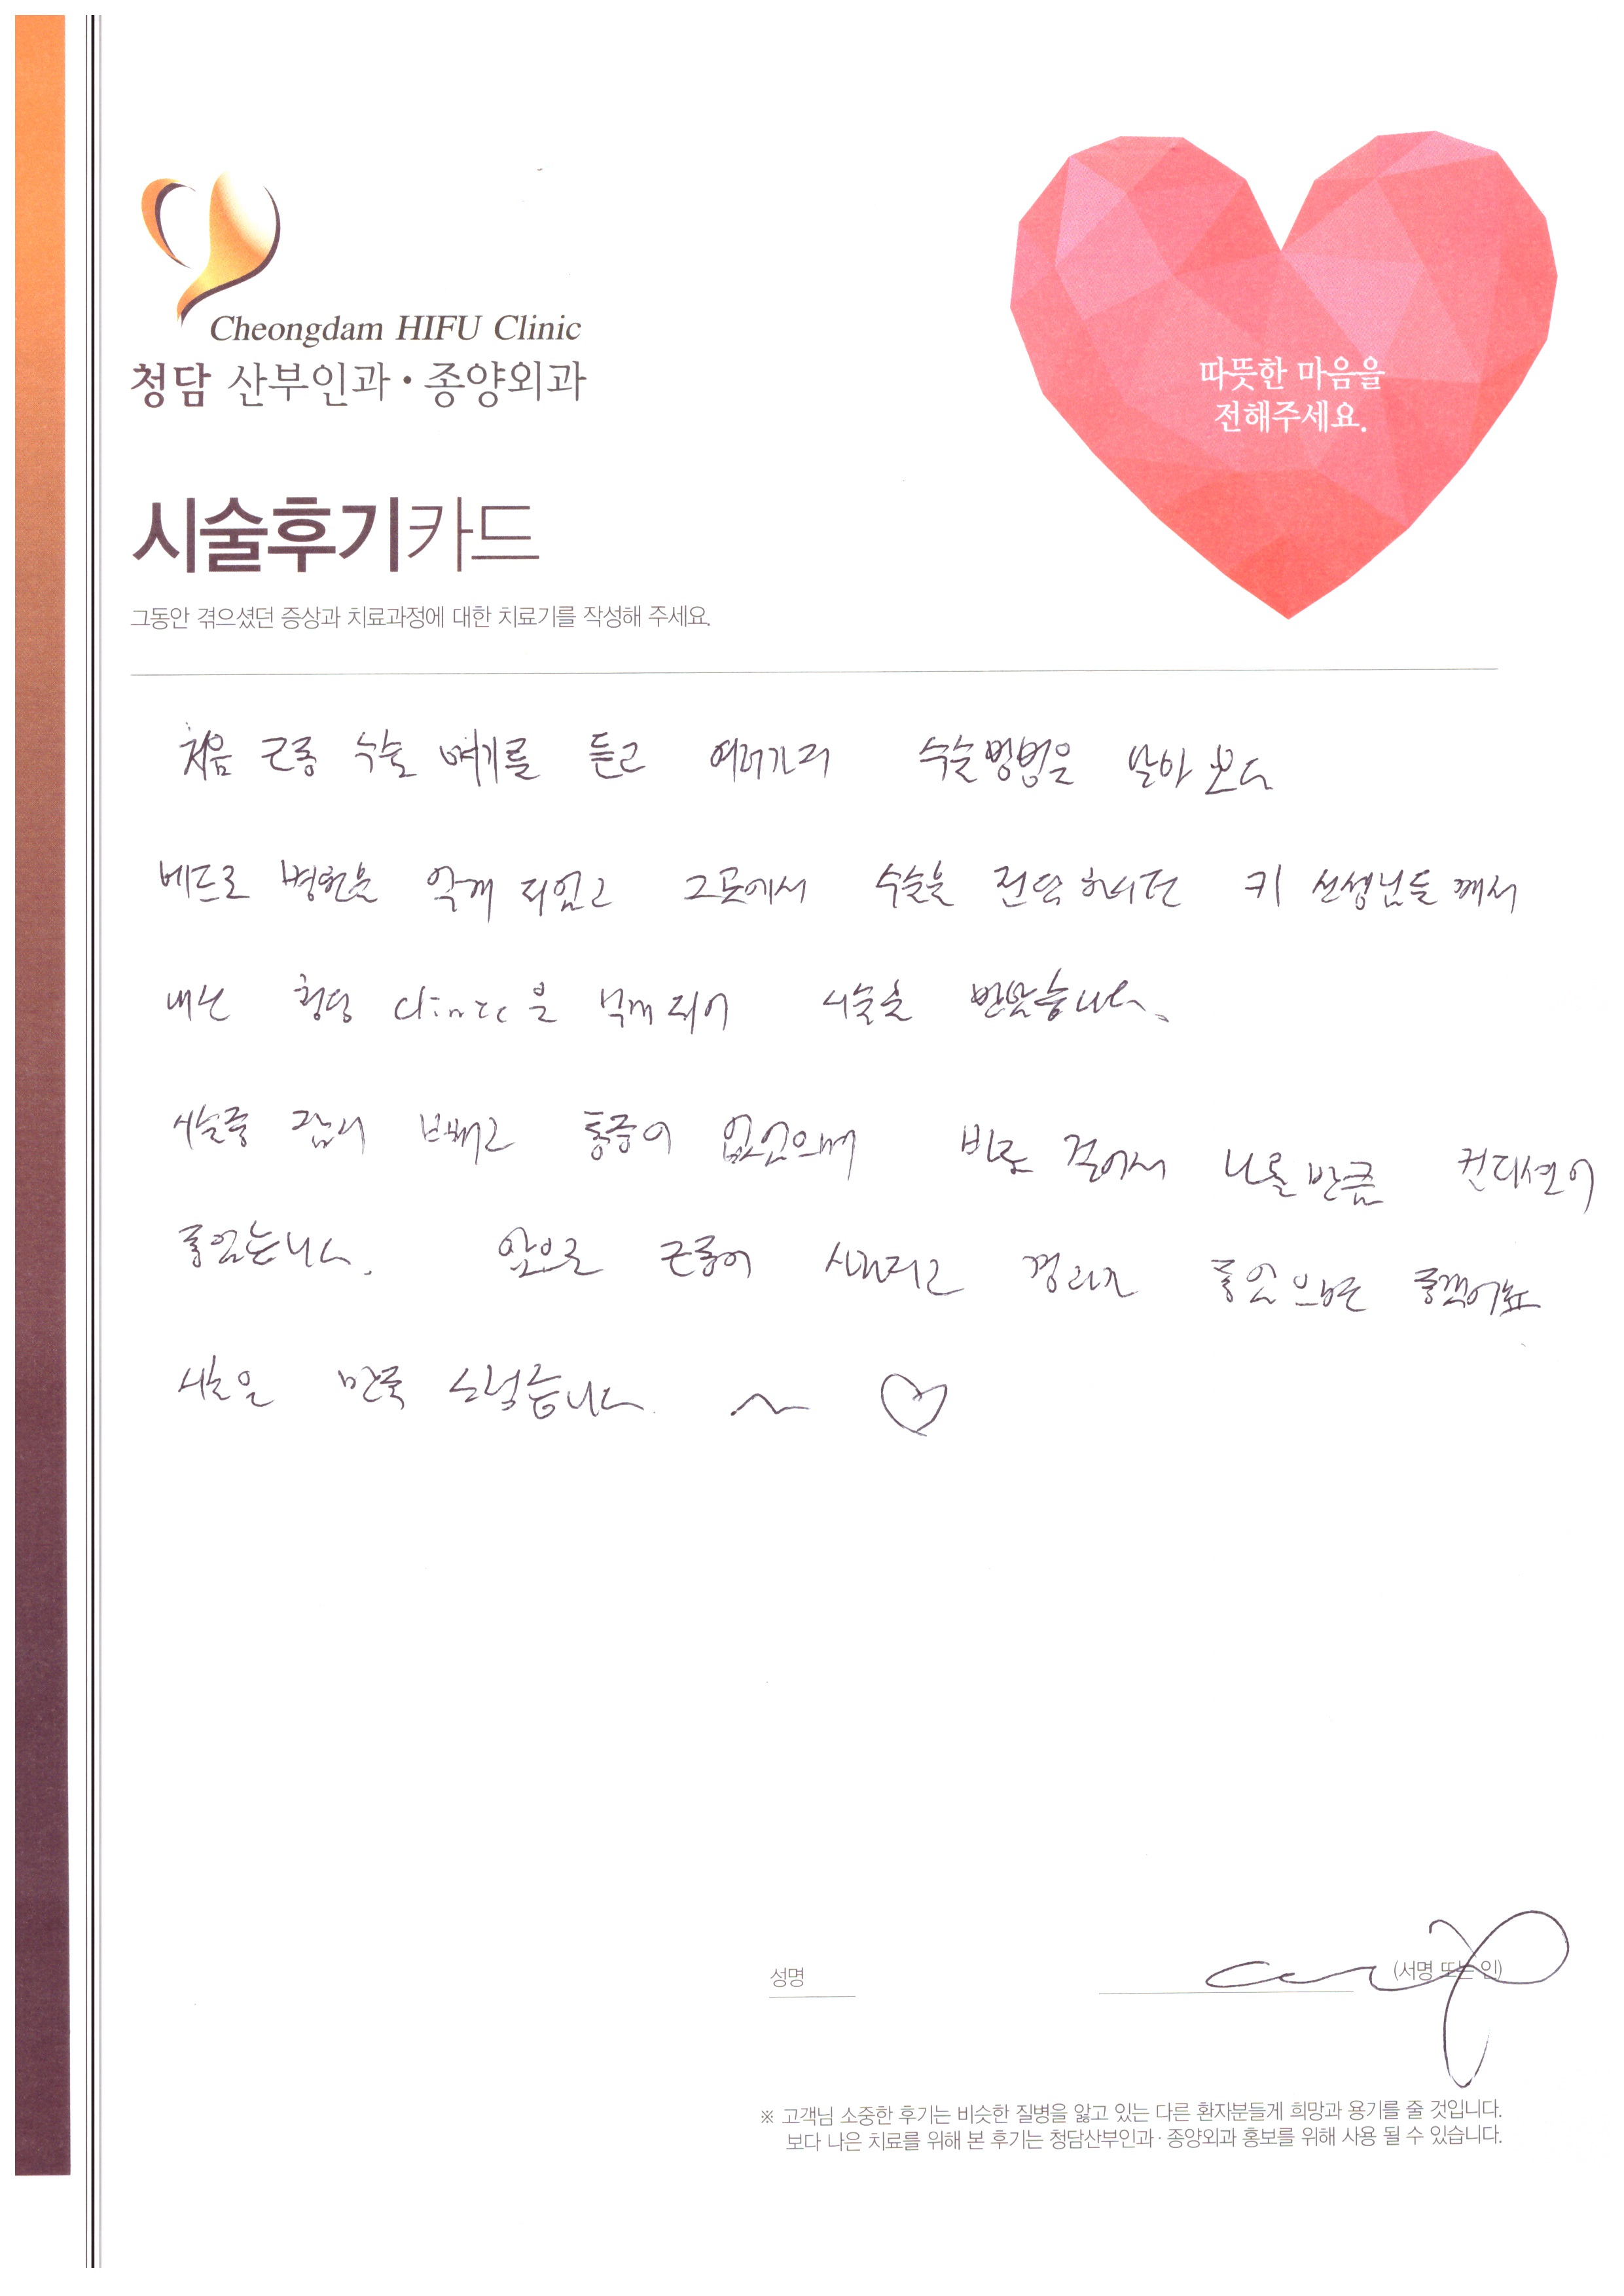 Cheongdam HIFU Clinic
청담 산부인과·종양외과
따뜻한 마음을
전해주세요.
시술후기카드
그동안 겪으셨던 증상과 치료과정에 대한 치료기를 작성해 주세요.
처음 근종 수술 얘기를 듣고 여러가지 수술방법을 알아 보다
베드로 병원을 알게 되었고 그곳에서 수술을 전담하시던 선생님들께서
내신 청담 clinic을 알게 되어 시술을 받았습니다.
시술중 잠시 빼고 통증이 없었으며 바로 걸어서 나올 만큼 컨디션이
좋았습니다. 앞으로 근종이 사라지고 경과가 좋았으면 좋겠어요
시술은 만족스럽습니다 ~ ♡
성명
(서명 또는 인)
※ 고객님 소중한 후기는 비슷한 질병을 앓고 있는 다른 환자분들게 희망과 용기를 줄 것입니다.
보다 나은 치료를 위해 본 후기는 청담산부인과·종양외과 홍보를 위해 사용 될 수 있습니다.